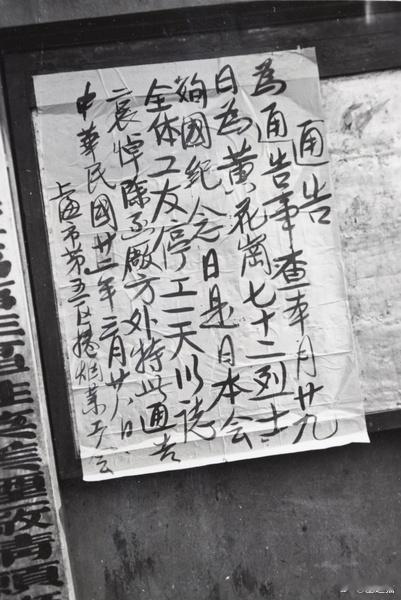 通告
為通告事查本月廿九
日為黃花崗七十二烈士
殉國紀念日是日本会
全体工友停工一天以誌
哀悼除函廠方外特此通告
中華民國廿二年三月廿八日
上海市第五区捲烟業工会